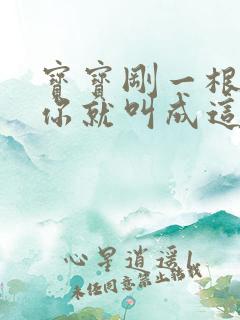 寶寶剛一根
你就叫成這
心星逍遥
未经同意禁止转载